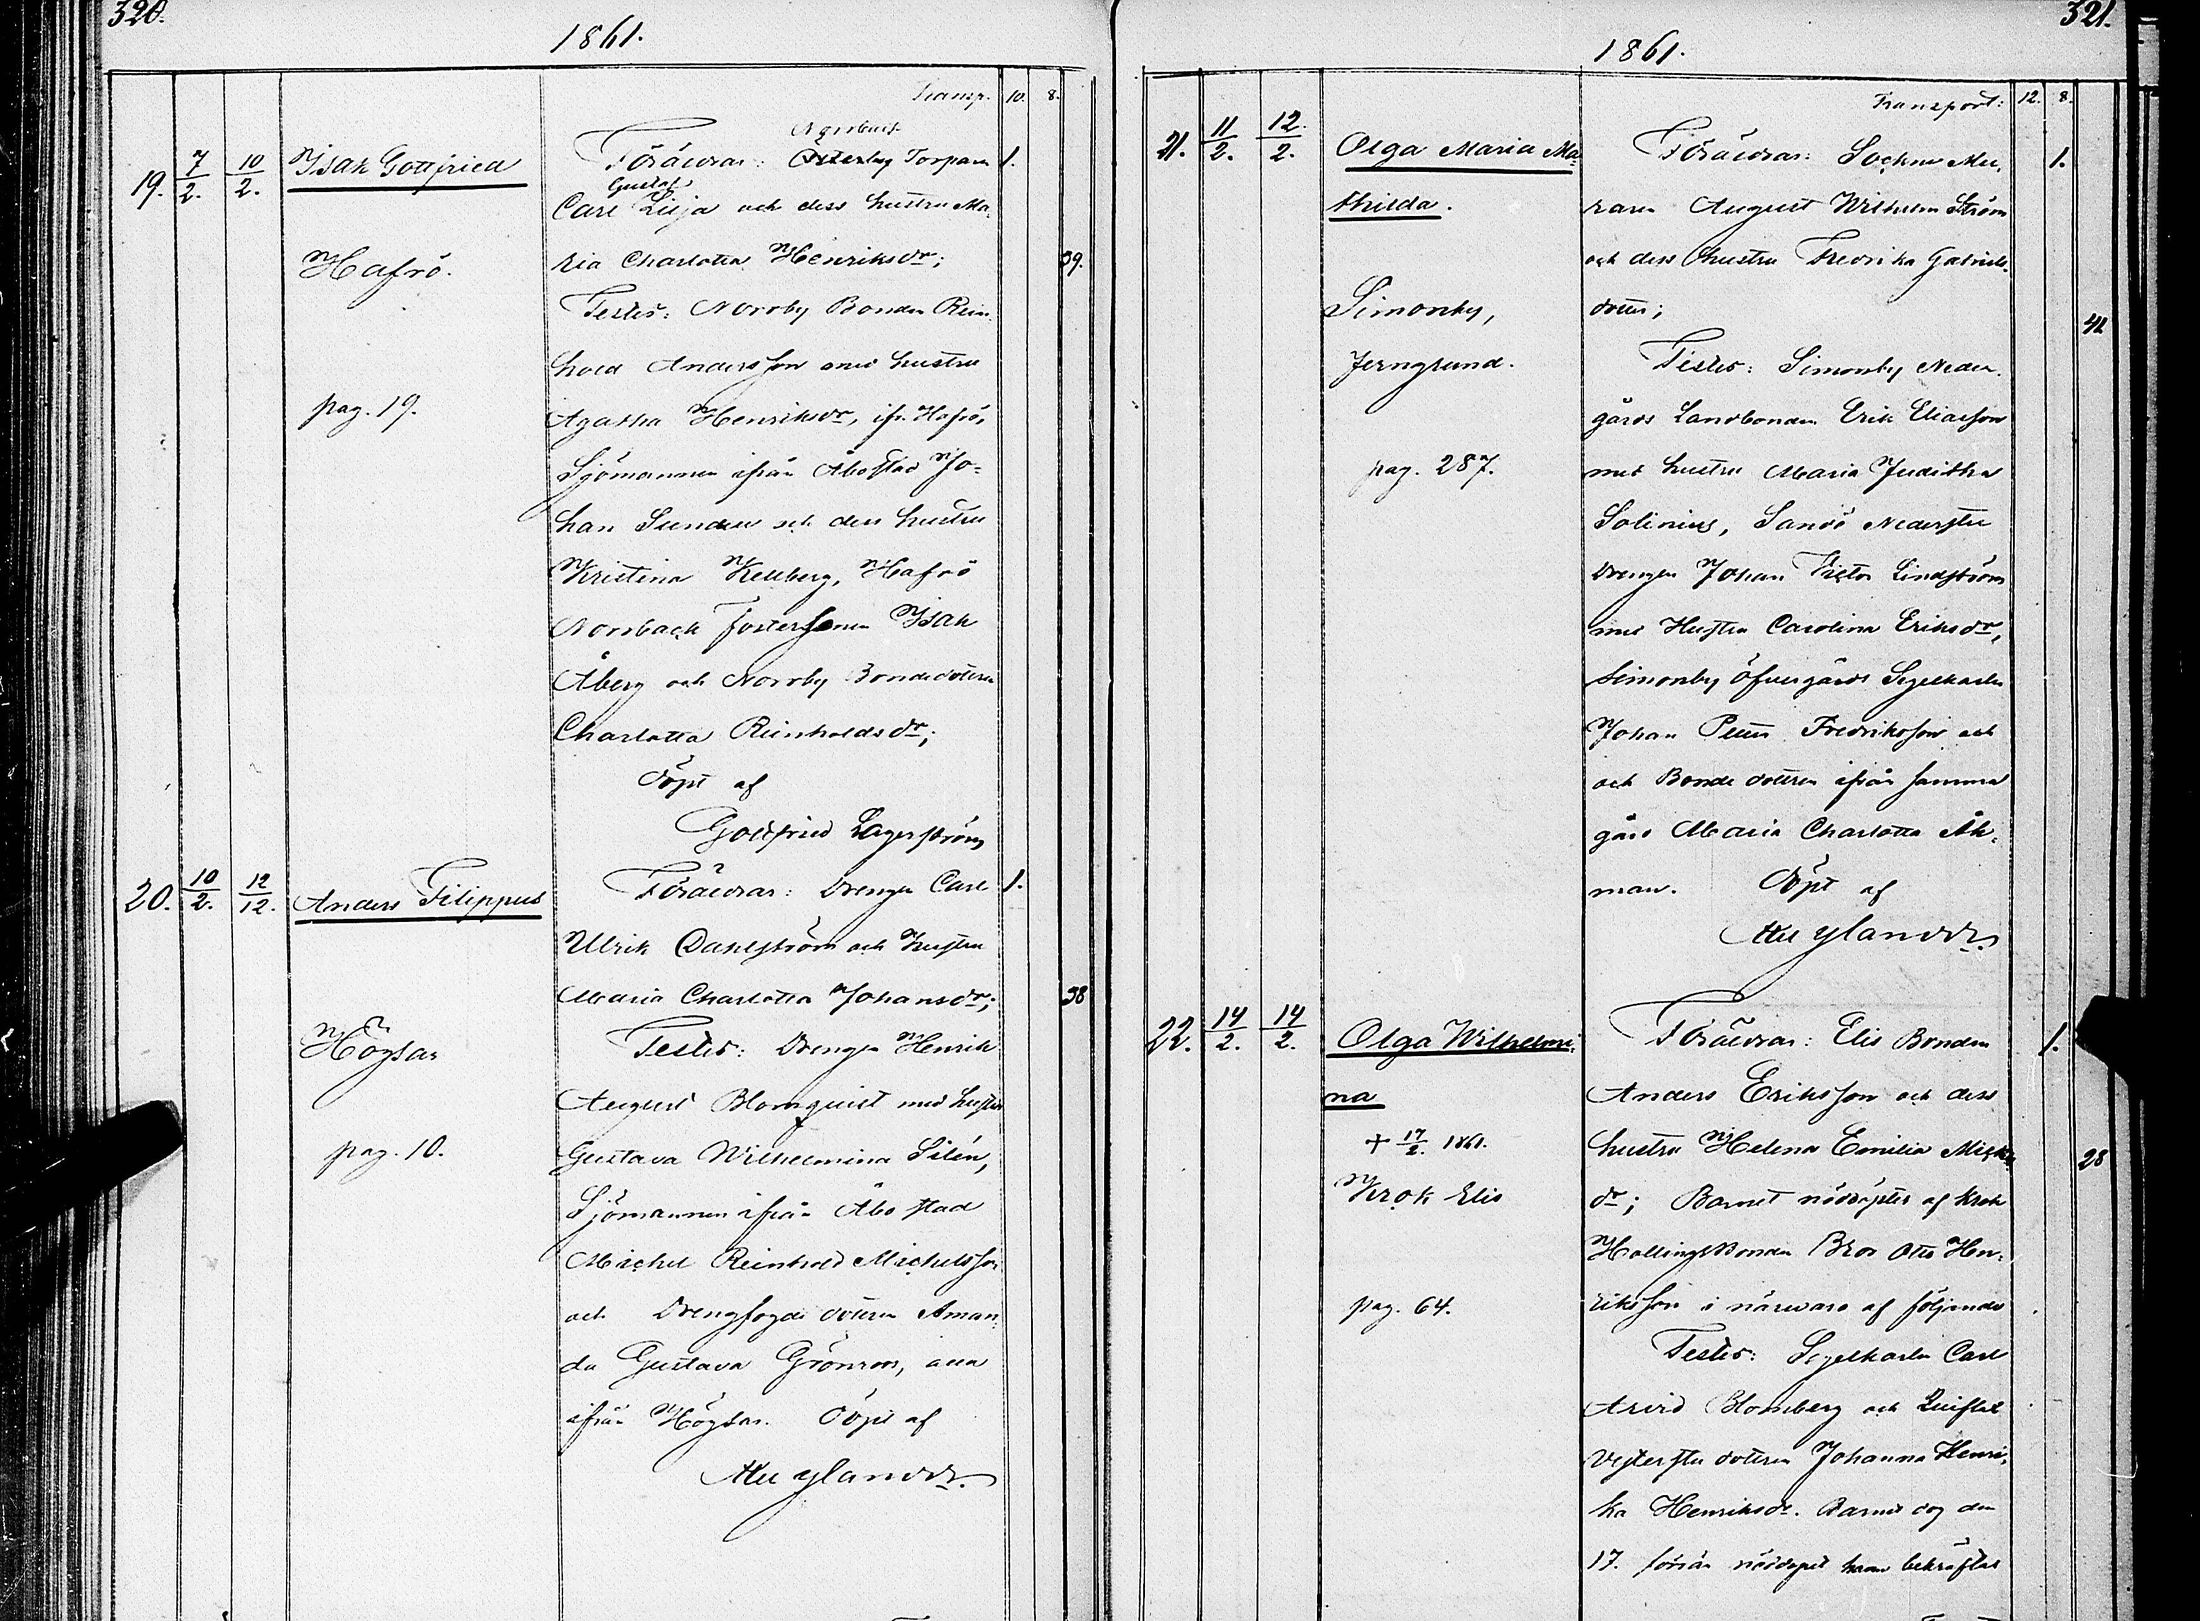 320.
1861.
Transp. 10. 8.
Norrback
19. 7/2. 10/2. Isak Gottfried Föräldrar: Österby Torparn 1.
Gustaf
Carl Lilja och dess hustru Ma-
Hafrö. ria Charlotta Henriksdr; 39.
Testes: Norrby Bonden Rein-
hold Andersson med hustru
pag. 19. Agatha Henriksdr, ifr. Hafrö,
Sjömannen ifrån Åbo stad Jo-
han Sundell och dess hustru
Kristina Kellberg, Hafrö
Norrback fostersonen Isak
Åberg och Norrby Bondedottren
Charlotta Reinholdsdr;
Döpt af
Gottfried Lagerström
20. 10/2. 12/12. Anders Filippus Föräldrar: Drengen Carl 1.
Ulrik Dahlström och hustru
Maria Charlotta Johansdr; 38
Högsar Testes: Drengen Henrik
August Blomquist med hustru
pag. 10. Gustava Wilhelmina Silén,
Sjömannen ifrån Åbo stad
Michel Reinhold Michelsson
och Drengfogde dottren Aman-
da Gustava Grönroos, alla
ifrån Högsar. Döpt af
Nylander.
321.
1861.
Transport: 12. 8.
21. 11/2. 12/2. Olga Maria Ma- Föräldrar: Sockne Mu- 1.
thilda. raren August Wilhelm Ström
och dess hustru Fredrika Gabriels-
Simonby, dotter; 42
Jerngrund. Testes: Simonby Neder-
gårds Landbonden Erik Eliasson
pag. 287. med hustru Maria Juditha
Solinius, Sandö Nederstu
Drengen Johan Victor Lindström
med Hustru Carolina Eriksdr,
Simonby Öfvergårds Segelkarlen
Johan Petter Fredriksson och
och Bonde dottren ifrån samma
gård Maria Charlotta Åk-
man. Döpt af
Nylander.
22. 14/2. 14/2. Olga Wilhelmi- Föräldrar: Elis Bonden 1.
na Anders Eriksson och dess
+ 17/2. 1861. hustru Helena Emilia Mickels- 28
Krok Elis dr; Barnet nöddöptes af Krok
Hollings Bonden Bror Otto Hen-
pag. 64. riksson i närvaro af följande
Testes: Segelkarlen Carl
Arvid Blomberg och
Vesterstu dottren Johanna Henri-
ka Henriksdr. Barnet dog den
17. förrän nöddopet hann bekräftas